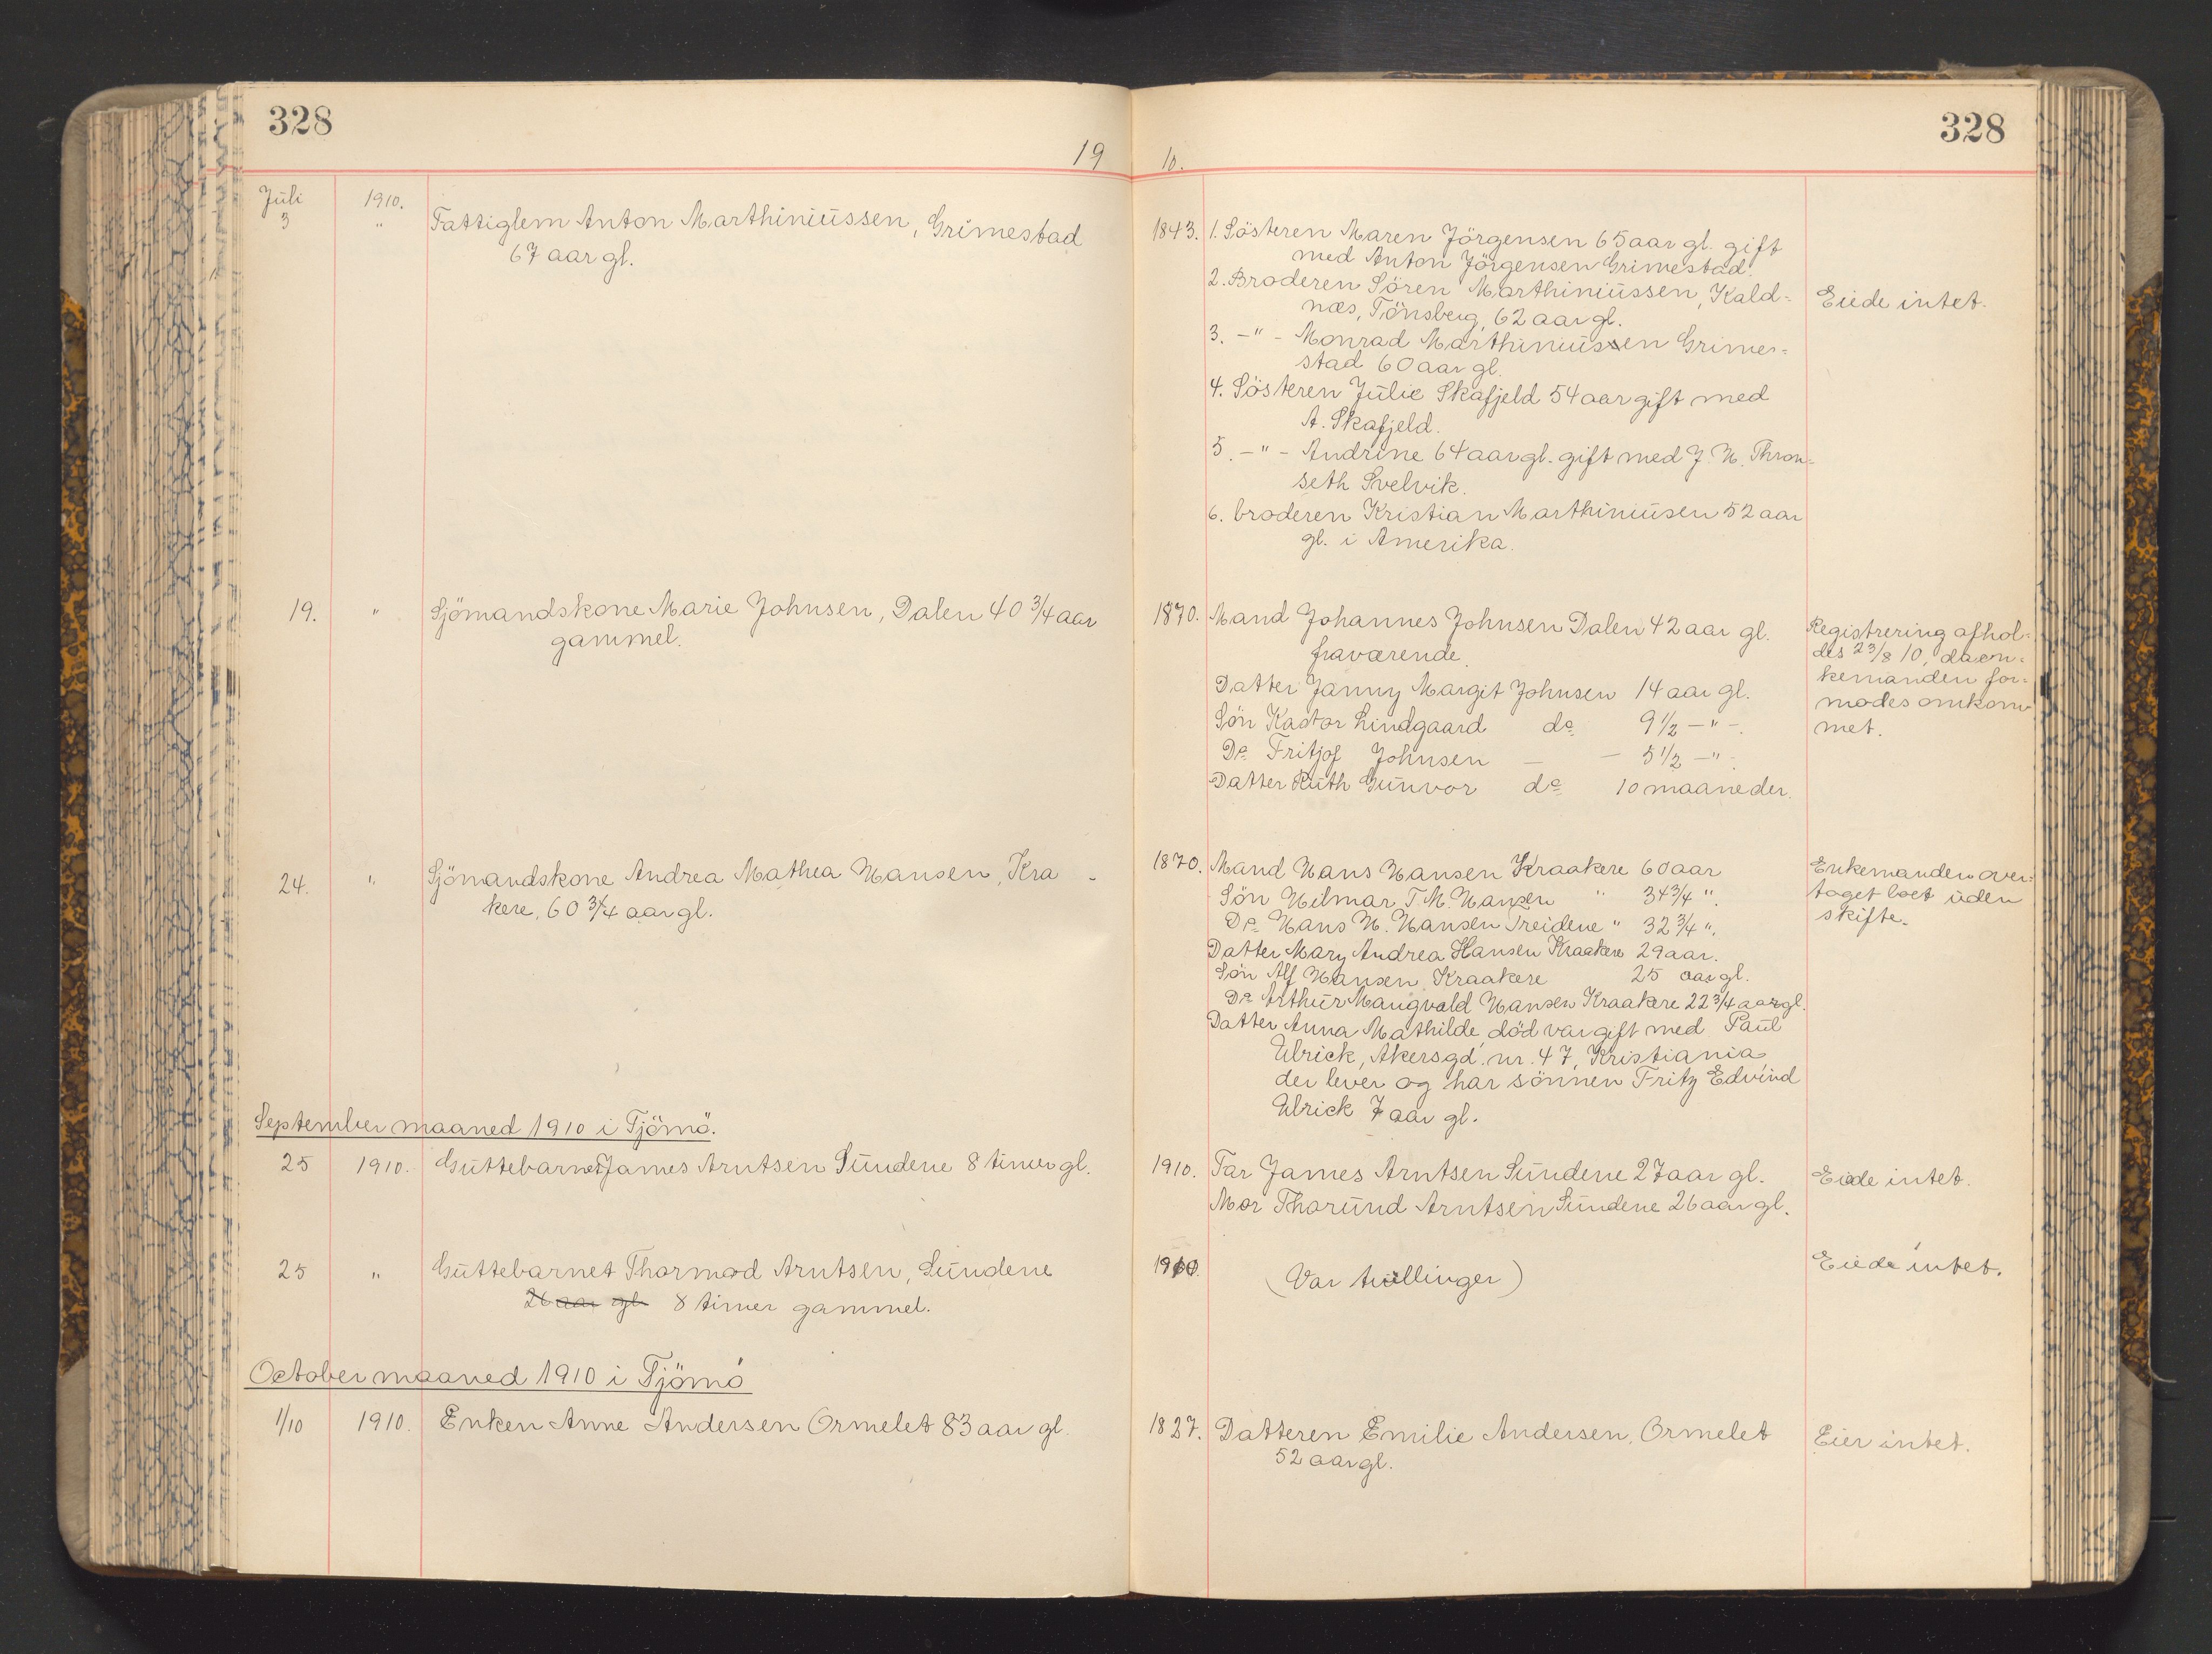 328
19
10.
328
Juli 1910.
3 " Fattiglem Anton Marthiniussen, Grimestad
67 aar gl.
1843. 1. Sösteren Maren Jörgensen 65 aar gl. gift
med Anton Jörgensen Grimestad.
2. Broderen Sören Marthiniussen, Kald-
næs, Tönsberg, 62 aar gl.
3. - " - Monrad Marthiniussen Grime-
stad 60 aar gl.
4. Sösteren Julie Skafjeld 54 aar gift med
A. Skafjeld.
5. - " - Andrine 64 aar gl. gift med J. N. Thron-
seth Svelvik.
6. broderen Kristian Marthiniusen 52 aar
gl. i Amerika.
Eiede intet.
19. " Sjömandskone Marie Johnsen, Dalen 40 3/4 aar
gammel.
1870. Mand Johannes Johnsen Dalen 42 aar gl.
fraværende.
Datter Janny Margit Johnsen 14 aar gl.
Sön Kastor Lindgaard do 9 1/2 - " -
Do Fritjof Johnsen — - 5 1/2 - " -
Datter Ruth Gunvor do 10 maaneder.
Registrering afhol-
des 23/8 10, da en-
kemanden for-
modes omkom-
met.
24. " Sjömandskone Andrea Mathea Hansen, Kra -
kere, 60 3/4 aar gl.
1870. Mand Hans Hansen Kraakere 60 aar
Sön Hilmar T. M. Hansen " 34 3/4 ".
Do Hans H. Hansen Treidene " 32 3/4 ".
Datter Mary Andrea Hansen Kraakere 29 aar.
Sön Alf Hansen, Kraakere 25 aar gl.
Do Arthur Mangvald Hansen Kraakere 22 3/4 aar gl.
Datter Anna Mathilde, död var gift med Paul
Ulrick, Akersgd. nr. 47, Kristiania
der lever og har sönnen Fritz Edvind
Ulrick 7 aar gl.
Enkemanden over-
taget boet uden
skifte.
September maaned 1910 i Tjömö.
25 1910. Guttebarnet James Arntsen Sundene 8 timer gl.
1910. Far James Arntsen Sundene 27 aar gl.
Mor Thorund Arntsen Sundene 26 aar gl.
Eiede intet.
25 " Guttebarnet Thormod Arntsen, Sundene
26 aar gl. 8 timer gammel.
1910. (Var tvillinger)
Eiede intet.
October maaned 1910 i Tjömö
1/10 1910. Enken Anne Andersen Ormelet 83 aar gl.
1827. Datteren Emilie Andersen, Ormelet
52 aar gl.
Eier intet.